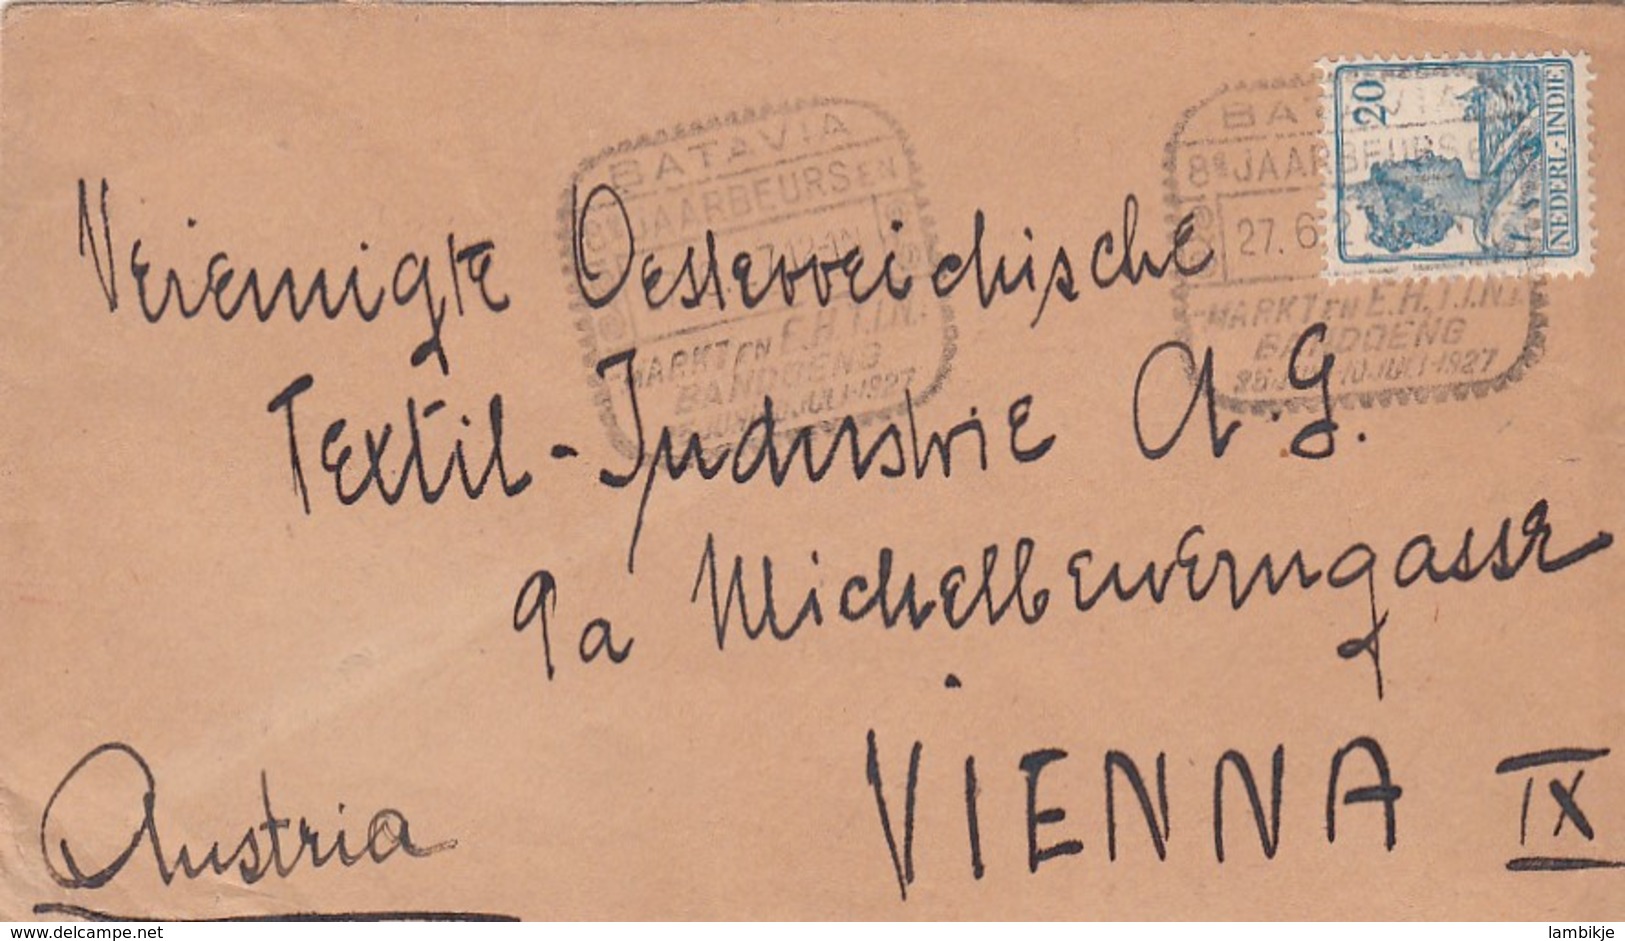 BATAVIA
8e JAARBEURS EN
27.6
MARKT EN E.H.T.I.N.
BANDOENG
25 JUNI 10 JULI-1927
BATAVIA
8e JAARBEURS EN
7.12-1N
MARKT EN E.H.T.I.N.
BANDOENG
JULI-1927
20
NEDERL-INDIE
Vereinigte Oesterreichische
Textil-Industrie A.G.
9a Michelbeuerngasse
VIENNA IX
Austria
delcampe.net
lambikje